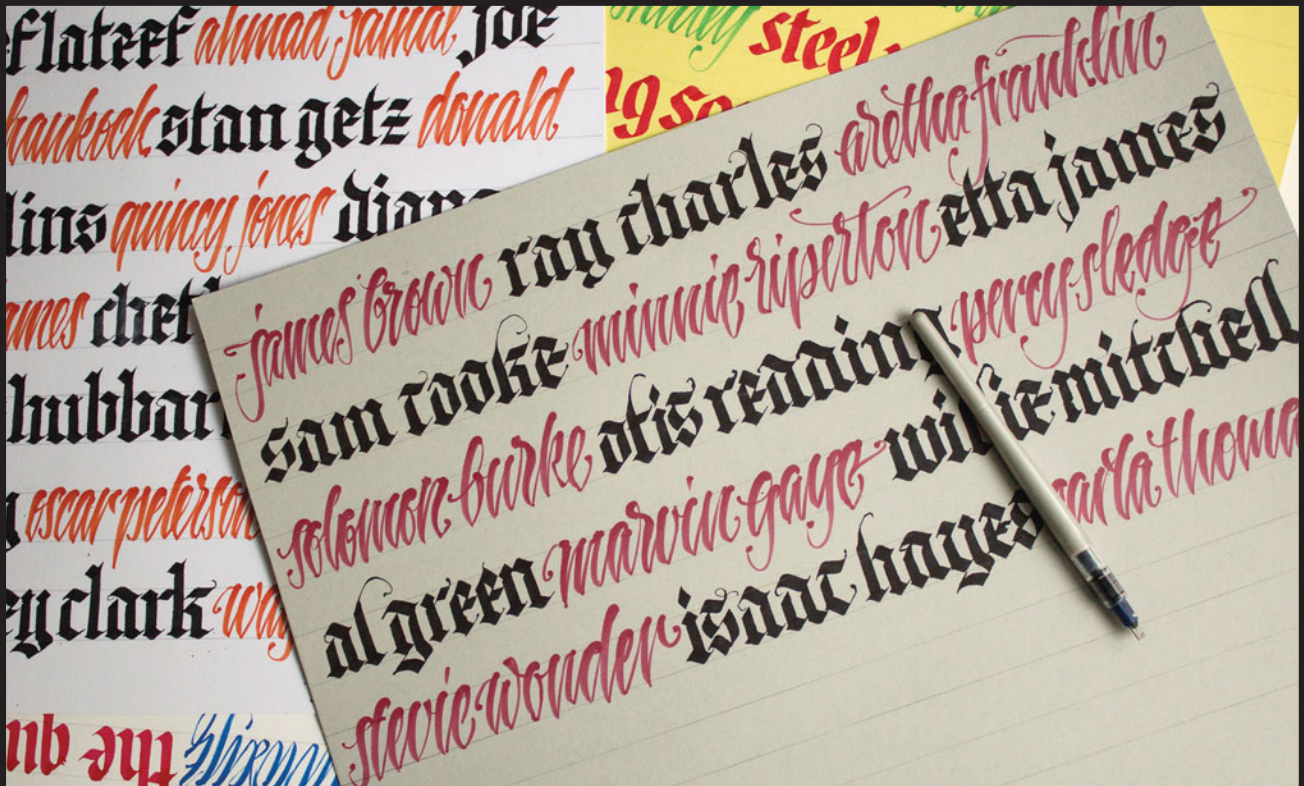 eflateef ahmad jamal joe
hankock stan getz donald
lins quincy jones
ames chet
hubbar
oscar peterson
ey clark way
the qu
steel
19 so
james brown ray charles aretha franklin
sam cooke minnie riperton etta james
solomon burke otis redding percy sledge
al green marvin gaye willie mitchell
stevie wonder isaac hayes carla thoma